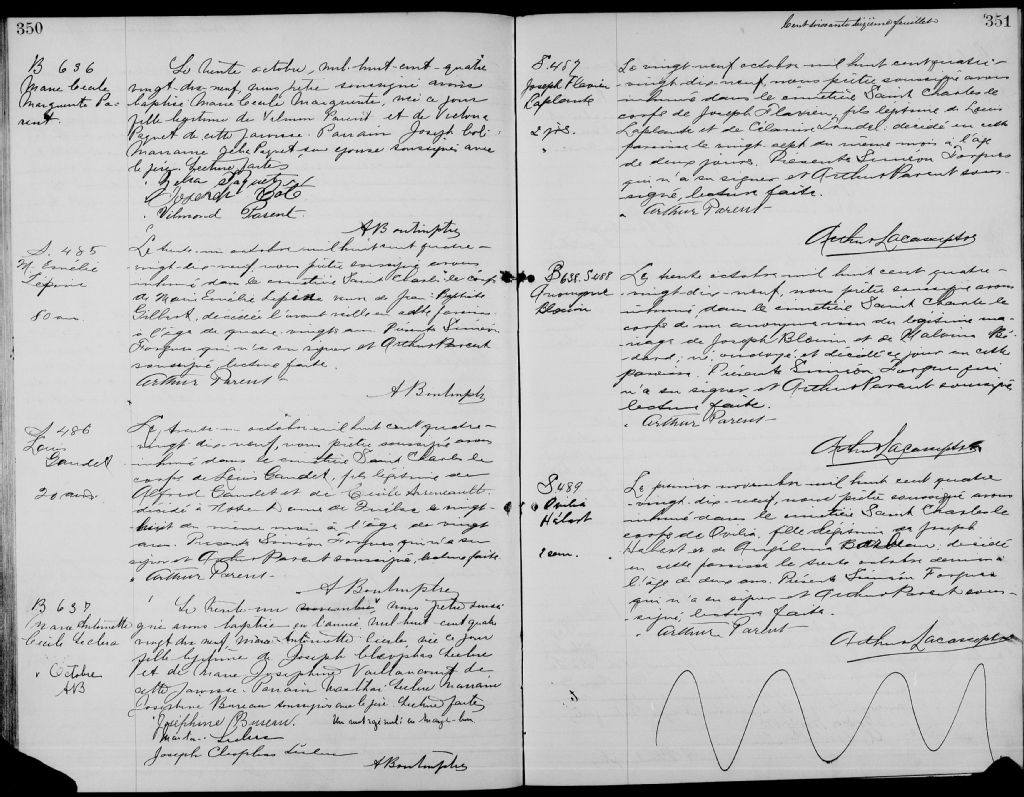 350
B 636
Marie Cécile
Marguerite Pa-
rent.
Le trente octobre, mil-huit-cent-quatre
vingt-dix-neuf, nous prêtre soussigné avons
baptisé Marie Cécile Marguerite, née ce jour
fille légitime de Vilmon Parent et de
Paquet de cette paroisse. Parrain Joseph
Marraine Paquet, son épouse soussignés avec
le père. Lecture faite.
Paquet
Joseph
Vilmond Parent
A Bontemps ptre
S. 485
M. Emélie
Lépine
80 ans
Le trente-un octobre mil huit cent quatre-
vingt-dix-neuf, nous prêtre soussigné avons
inhumé dans le cimetière Saint Charles le corps
de Marie Emélie veuve de Jean-Baptiste
Gilbert, décédée l'avant veille en cette paroisse
à l'âge de quatre-vingts ans. Présents Siméon
Forgues qui n'a su signer et Arthur Parent
soussigné lecture faite.
Arthur Parent
A Bontemps ptre
S. 486
Louis
Gaudet
20 ans
Le trente-un octobre mil huit cent quatre-
vingt-dix-neuf, nous prêtre soussigné avons
inhumé dans le cimetière Saint Charles le
corps de Louis Gaudet, fils légitime de
Alfred Gaudet et de Cécile Arseneault
décédé à Notre D ame de Québec le vingt-
huit du même mois à l'âge de vingt
ans. Présents Siméon Forgues qui n'a su
signer et Arthur Parent soussigné, lecture faite.
Arthur Parent
A Bontemps ptre
B 637
Marie Antoinette
Cécile Leclerc
Octobre
AB
Le trente-un novembre, nous prêtre soussi-
gné avons baptisé en l'année mil-huit-cent-quatre
vingt-dix-neuf Marie-Antoinette Cécile née ce jour
fille légitime de Joseph Cléophas Leclerc
et de Marie Josephine Vaillancourt de
cette paroisse. Parrain Leclerc Marraine
Josephine Bureau soussignés avec le père. Lecture faite
Josephine Bureau. Un mot rayé nul: en marge bon
Leclerc
Joseph Cléophas Leclerc
A Bontemps ptre
Cent soixante seizième feuillet
351
S. 487
Joseph Flavien
Laplante
2 jrs.
Le vingt-neuf octobre mil huit cent quatre-
vingt-dix-neuf, nous prêtre soussigné avons
inhumé dans le cimetière Saint Charles le
corps de Joseph Flavien, fils légitime de Louis
Laplante et de Célanire décédé en cette
paroisse le vingt sept du même mois à l'âge
de deux jours. Présents Siméon Forgues
qui n'a su signer et Arthur Parent sous-
signé, lecture faite.
Arthur Parent
Arthur Lacasse ptre
B 638. S 488
Anonyme
Blouin
Le trente octobre mil huit cent quatre-
vingt-dix-neuf, nous prêtre soussigné avons
inhumé dans le cimetière Saint Charles le
corps de un anonyme issu du légitime ma-
riage de Joseph Blouin et de Malvina Bé-
dard, né, ondoyé et décédé ce jour en cette
paroisse. Présents Siméon Forgues qui
n'a su signer et Arthur Parent soussigné,
lecture faite.
Arthur Parent
Arthur Lacasse ptre
S 489
Ovilia
Hébert
2 ans.
Le premier novembre mil huit cent quatre
-vingt-dix-neuf, nous prêtre soussigné avons
inhumé dans le cimetière Saint Charles le
corps de Ovilia, fille légitime de Joseph
Hébert et de Angélina décédée
en cette paroisse le trente octobre dernier à
l'âge de deux ans. Présents Siméon Forgues
qui n'a su signer et Arthur Parent sous-
signé, lecture faite.
Arthur Parent
Arthur Lacasse ptre